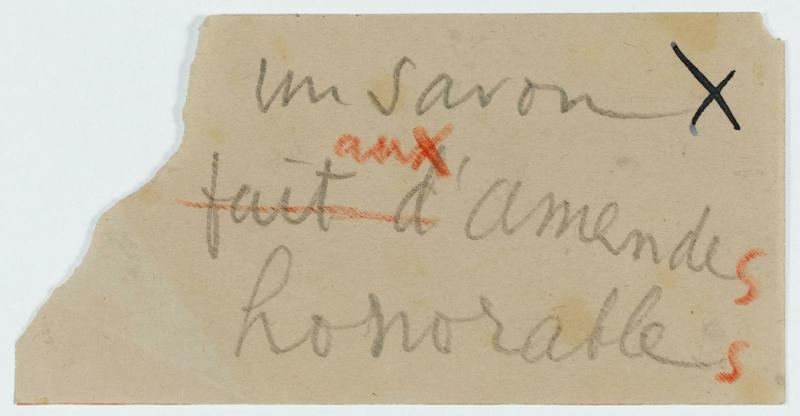 un savon X
aux
fait d'amendes
honorables